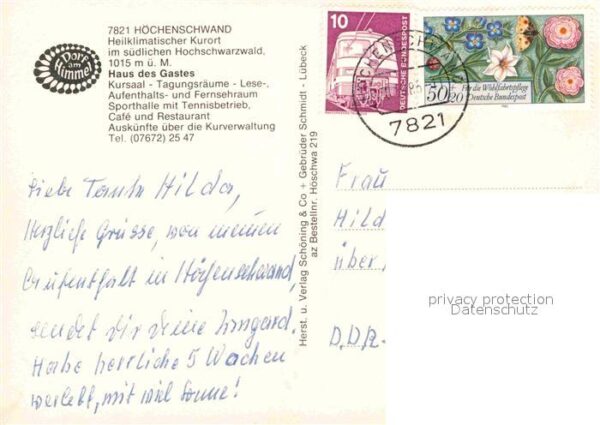 7821 HÖCHENSCHWAND
Heilklimatischer Kurort
im südlichen Hochschwarzwald,
1015 m ü. M.
Haus des Gastes
Kursaal - Tagungsräume - Lese-,
Aufenthalts- und Fernsehraum
Sporthalle mit Tennisbetrieb,
Café und Restaurant
Auskünfte über die Kurverwaltung
Tel. (07672) 25 47
Dorf am Himmel
Herst. u. Verlag Schöning & Co + Gebrüder Schmidt - Lübeck
az Bestellnr. Höschwa 219
10
DEUTSCHE BUNDESPOST
50+20
Für die Wohlfahrtspflege
Deutsche Bundespost
7821
Liebe Tante Hilda,
Herzliche Grüsse, von meinem
Aufenthalt in Höchenschwand,
sendet Dir Deine Irmgard.
Habe herrliche 5 Wochen
verlebt, mit viel Sonne!
Frau
Hild
über
D.D.R.
privacy protection
Datenschutz